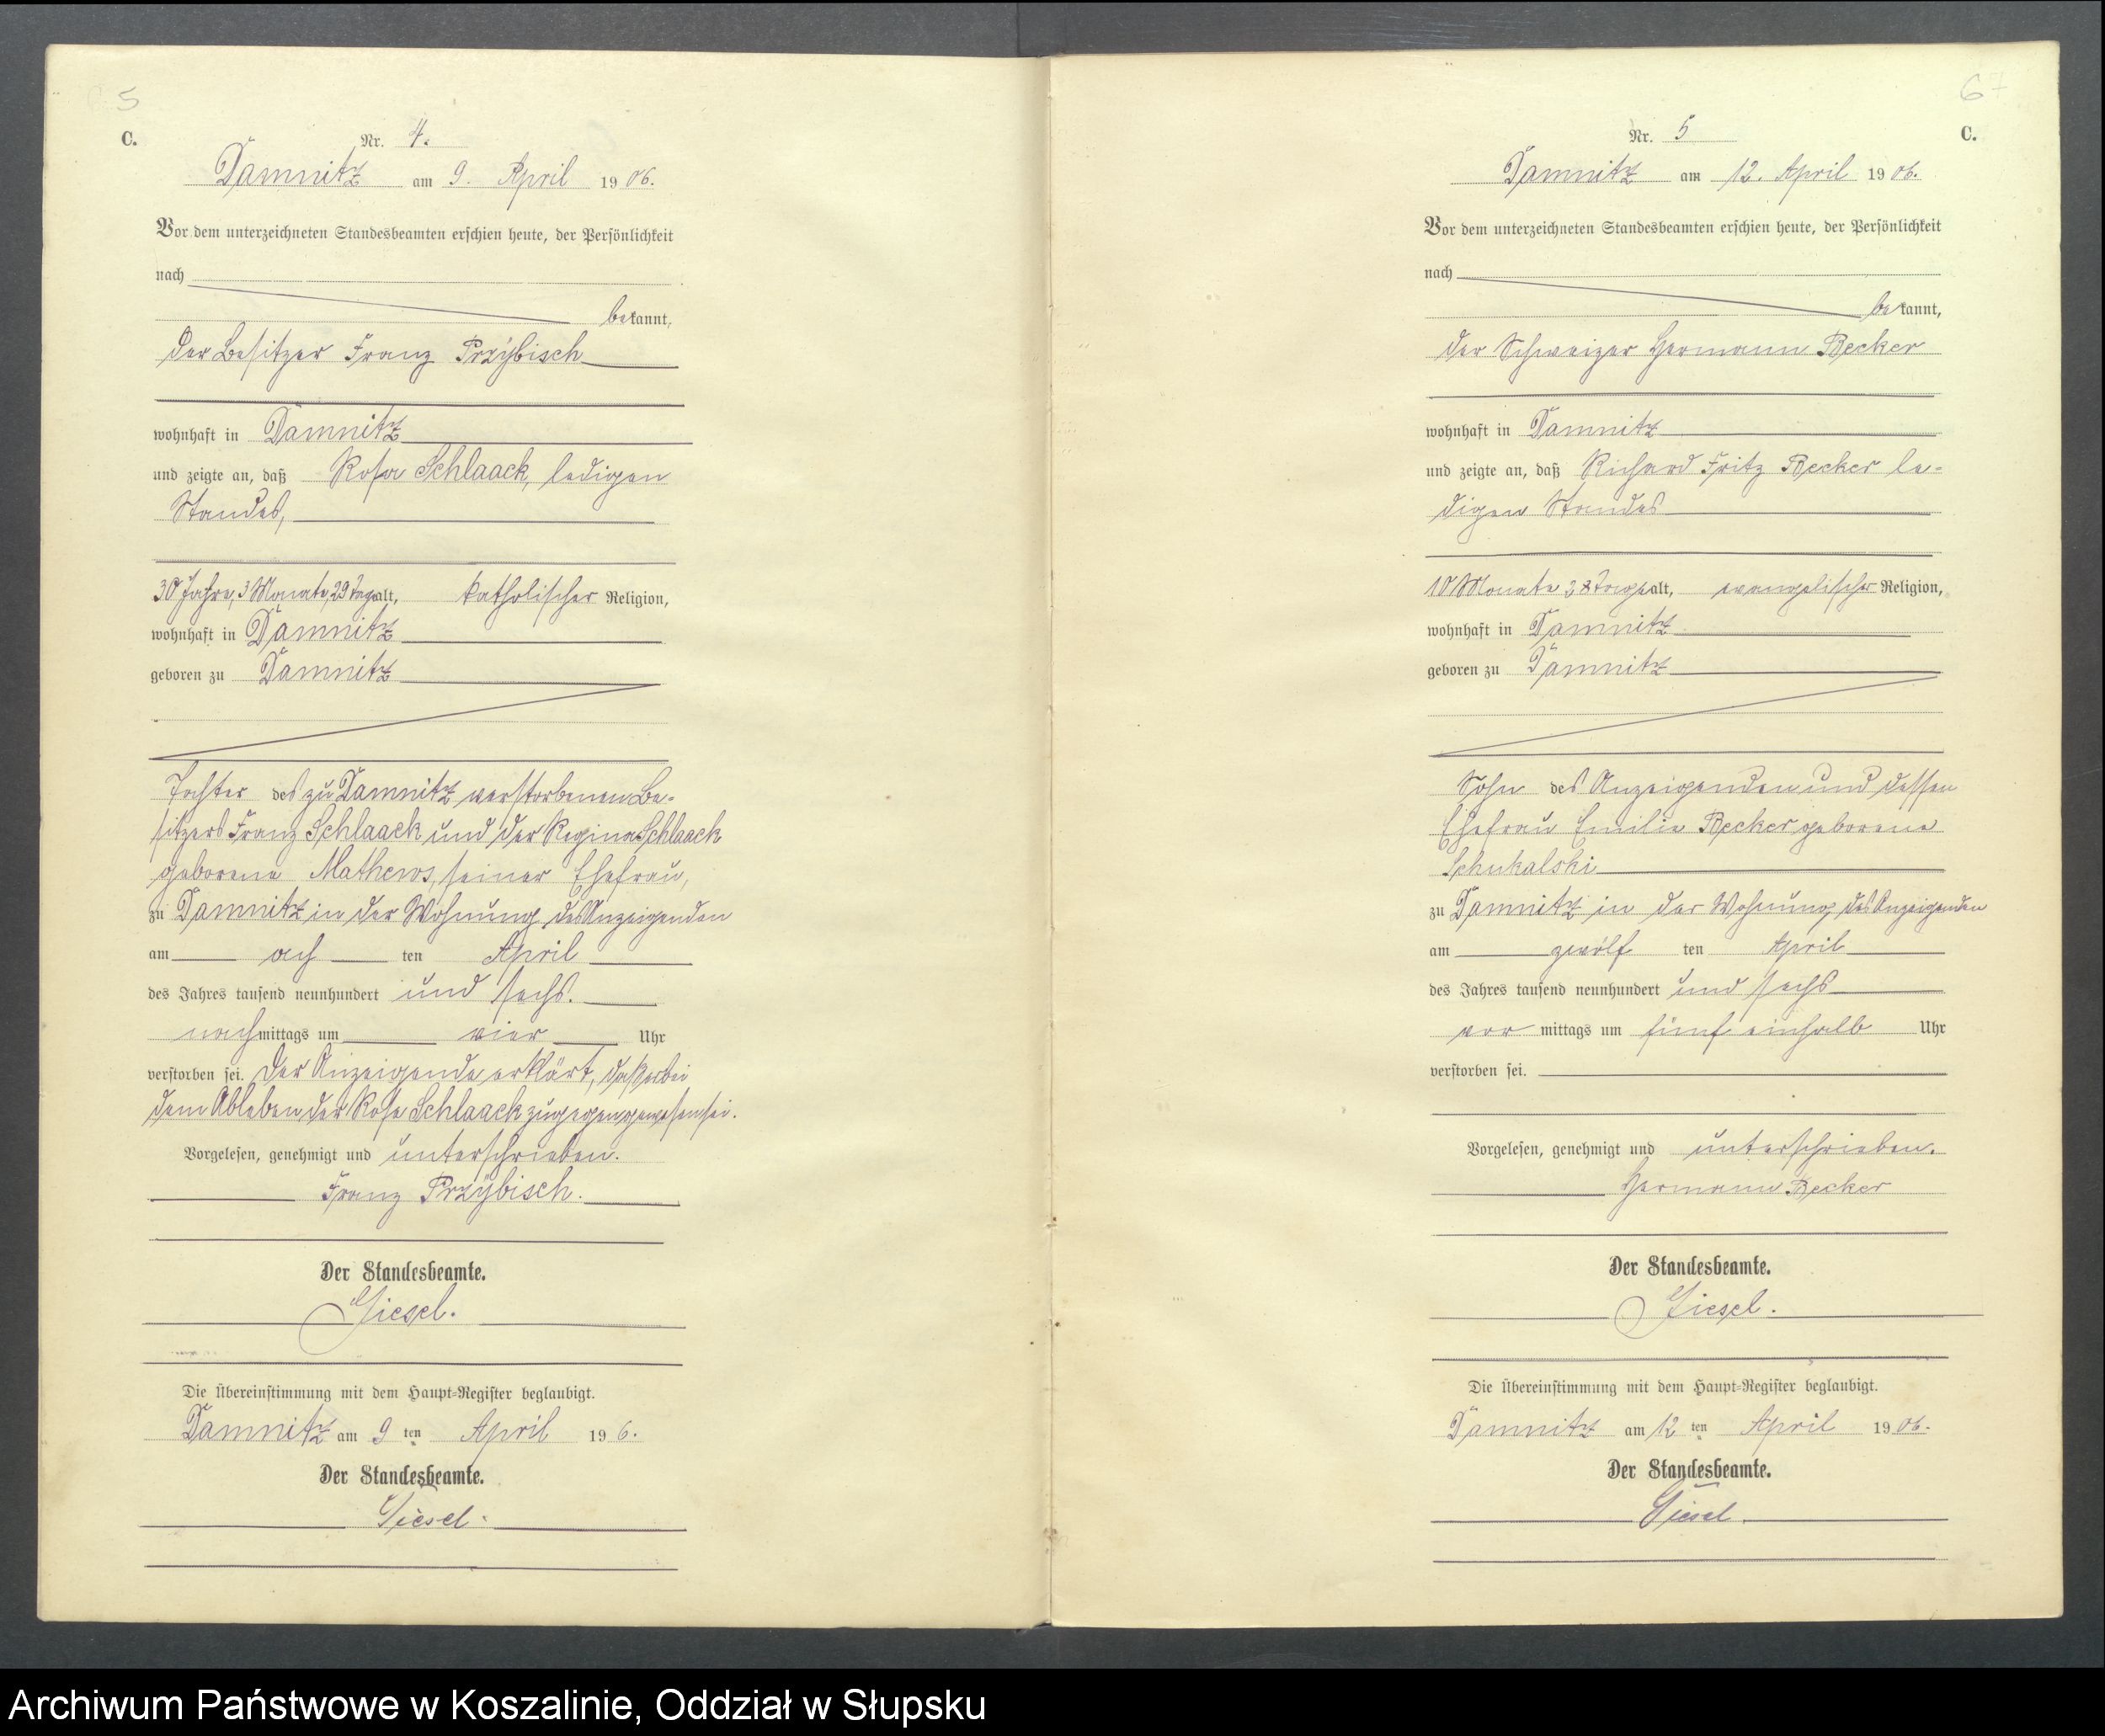 5
C.
Nr. 4.
Damnitz am 9. April 1906.
Vor dem unterzeichneten Standesbeamten erschien heute, der Persönlichkeit
nach
bekannt,
der Besitzer Franz Przÿbisch
wohnhaft in Damnitz
und zeigte an, daß Rosa Schlaack, ledigen
Standes,
30 Jahre, 3 Monate, 29 Tage alt, katholischer Religion,
wohnhaft in Damnitz
geboren zu Damnitz
Tochter des zu Damnitz verstorbenen Be-
sitzers Franz Schlaack und der Regina Schlaack
geborene Mathews, seiner Ehefrau,
zu Damnitz in der Wohnung des Anzeigenden
am ach ten April
des Jahres tausend neunhundert und sechs.
nachmittags um vier Uhr
verstorben sei. Der Anzeigende erklärt, daß er bei
dem Ableben der Rosa Schlaack zugegen gewesen sei.
Vorgelesen, genehmigt und unterschrieben.
Franz Przÿbisch.
Der Standesbeamte.
Giesel.
Die Übereinstimmung mit dem Haupt-Register beglaubigt.
Damnitz am 9 ten April 19 6.
Der Standesbeamte.
Giesel.
67
Nr. 5
C.
Damnitz am 12. April 1906.
Vor dem unterzeichneten Standesbeamten erschien heute, der Persönlichkeit
nach
bekannt,
der Schweizer Hermann Becker
wohnhaft in Damnitz
und zeigte an, daß Richard Fritz Becker le-
digen Standes
10 Monate 28 Tage alt, evangelischer Religion,
wohnhaft in Damnitz
geboren zu Damnitz
Sohn des Anzeigenden und dessen
Ehefrau Emilie Becker geborene
Schukalski
zu Damnitz in der Wohnung des Anzeigenden
am zwölf ten April
des Jahres tausend neunhundert und sechs
vor mittags um fünf einhalb Uhr
verstorben sei.
Vorgelesen, genehmigt und unterschrieben.
Hermann Becker
Der Standesbeamte.
Giesel.
Die Übereinstimmung mit dem Haupt-Register beglaubigt.
Damnitz am 12 ten April 1906.
Der Standesbeamte.
Giesel.
Archiwum Państwowe w Koszalinie, Oddział w Słupsku